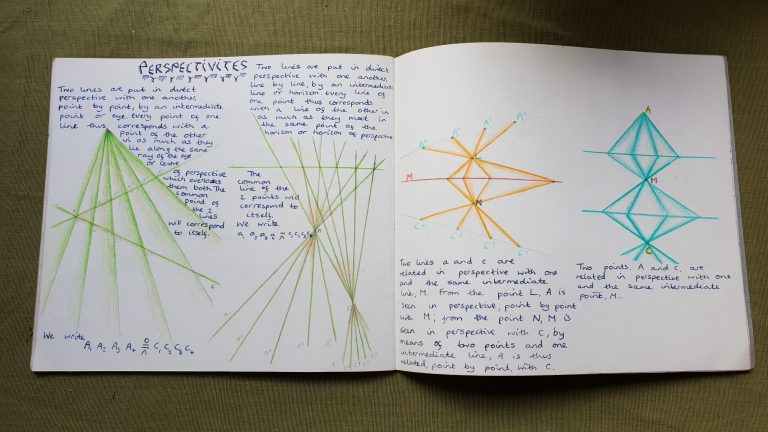 PERSPECTIVITES
Two lines are put in direct
perspective with one another,
point by point, by an intermediate
point or eye. Every point of one
line thus corresponds with a
point of the other
in as much as they
lie along the same
ray of the eye
or centre
of perspective
which overlooks
them both. The
common
point of
the 2
lines
will correspond
to itself.
We write
A₁ A₂ A₃ A₄ ⩞ C₁ C₂ C₃ C₄
Two lines are put in direct
perspective with one another,
line by line, by an intermediate
line or horizon. Every line of
one point thus corresponds
with a line of the other in
as much as they meet in
the same point of the
horizon or horizon of perspective
The
common
line of the
2 points will
correspond to
itself.
We write
A¹
A²
A³
A⁴
L
M
N
C⁴
C³
C²
C¹
Two lines a and c are
related in perspective with one
and the same intermediate
line, M. From the point L, A is
seen in perspective, point by point
with M; from the point N, M is
seen in perspective with C, by
means of two points and one
intermediate line, A is thus
related, point by point, with C.
A
M
C
Two points, A and C, are
related in perspective with one
and the same intermediate
point, M.